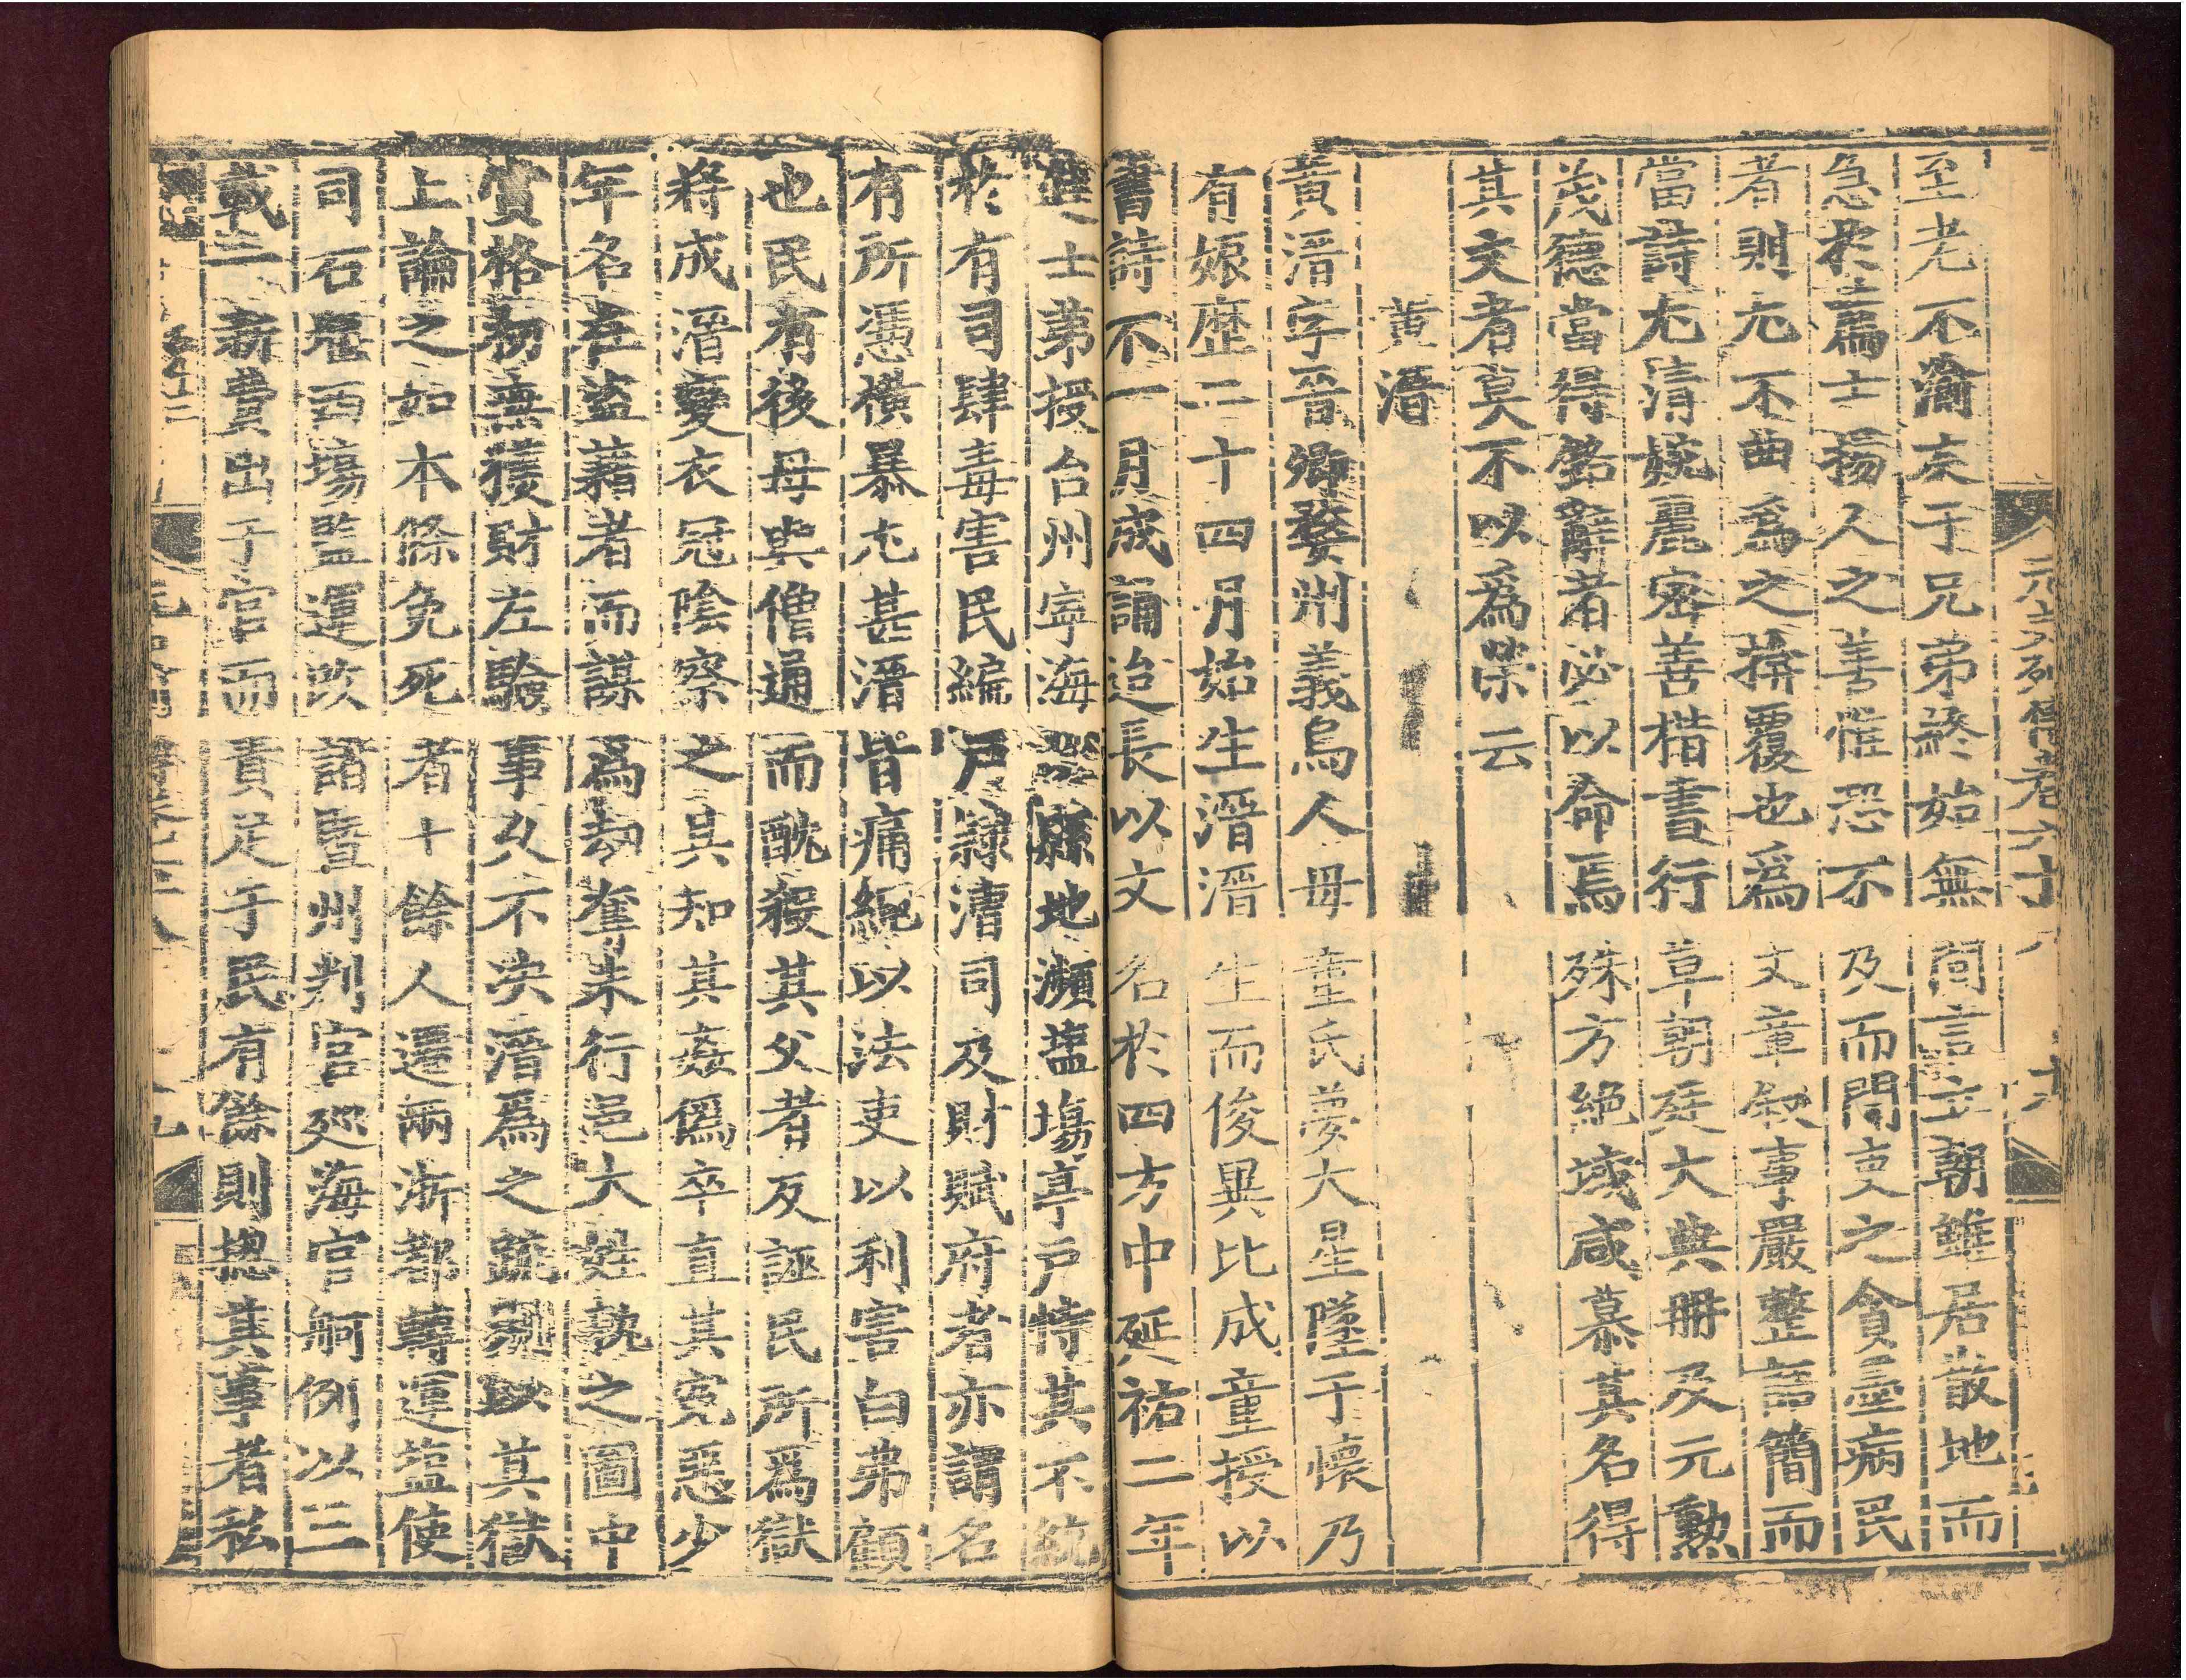 至老不渝友于兄弟終始無間言立朝雖居散地而
急於爲士揚人之善惟恐不及而聞吏之貪墨病民
者則尤不曲爲之揜覆也爲文章叙事嚴整語簡而
當詩尤清婉麗密善楷書行草朝廷大典冊及元勲
茂德當得銘辭者必以命焉殊方絶域咸慕其名得
其文者莫不以爲榮云
黄溍
黄溍字晉卿婺州義烏人母童氏夢大星墜于懷乃
有娠歷二十四月始生溍溍生而俊異比成童授以
書詩不一月成誦迨長以文名於四方中延祐二年
進士第授台州寧海縣地瀕塩塲亭戶恃其不統
於有司肆毒害民編戸隷漕司及財賦府者亦謂名
有所憑橫暴尤甚溍皆痛繩以法吏以利害白弗顧
也民有後母與僧通而酖殺其父者反誣民所爲獄
將成溍變衣冠陰察之具知其姦僞卒直其寃惡少
年名在盜藉者而謀爲刼奪未行邑大姓執之圖中
賞格初無獲財左驗事久不決溍爲之疏剔以其獄
上論之如本條免死者十餘人遷兩浙都轉運塩使
司石堰西塲監運改諸曁州判官廵海官舸例以三
載一新費出于官而責足于民有餘則總其事者私
元史列傳卷六十八
十六